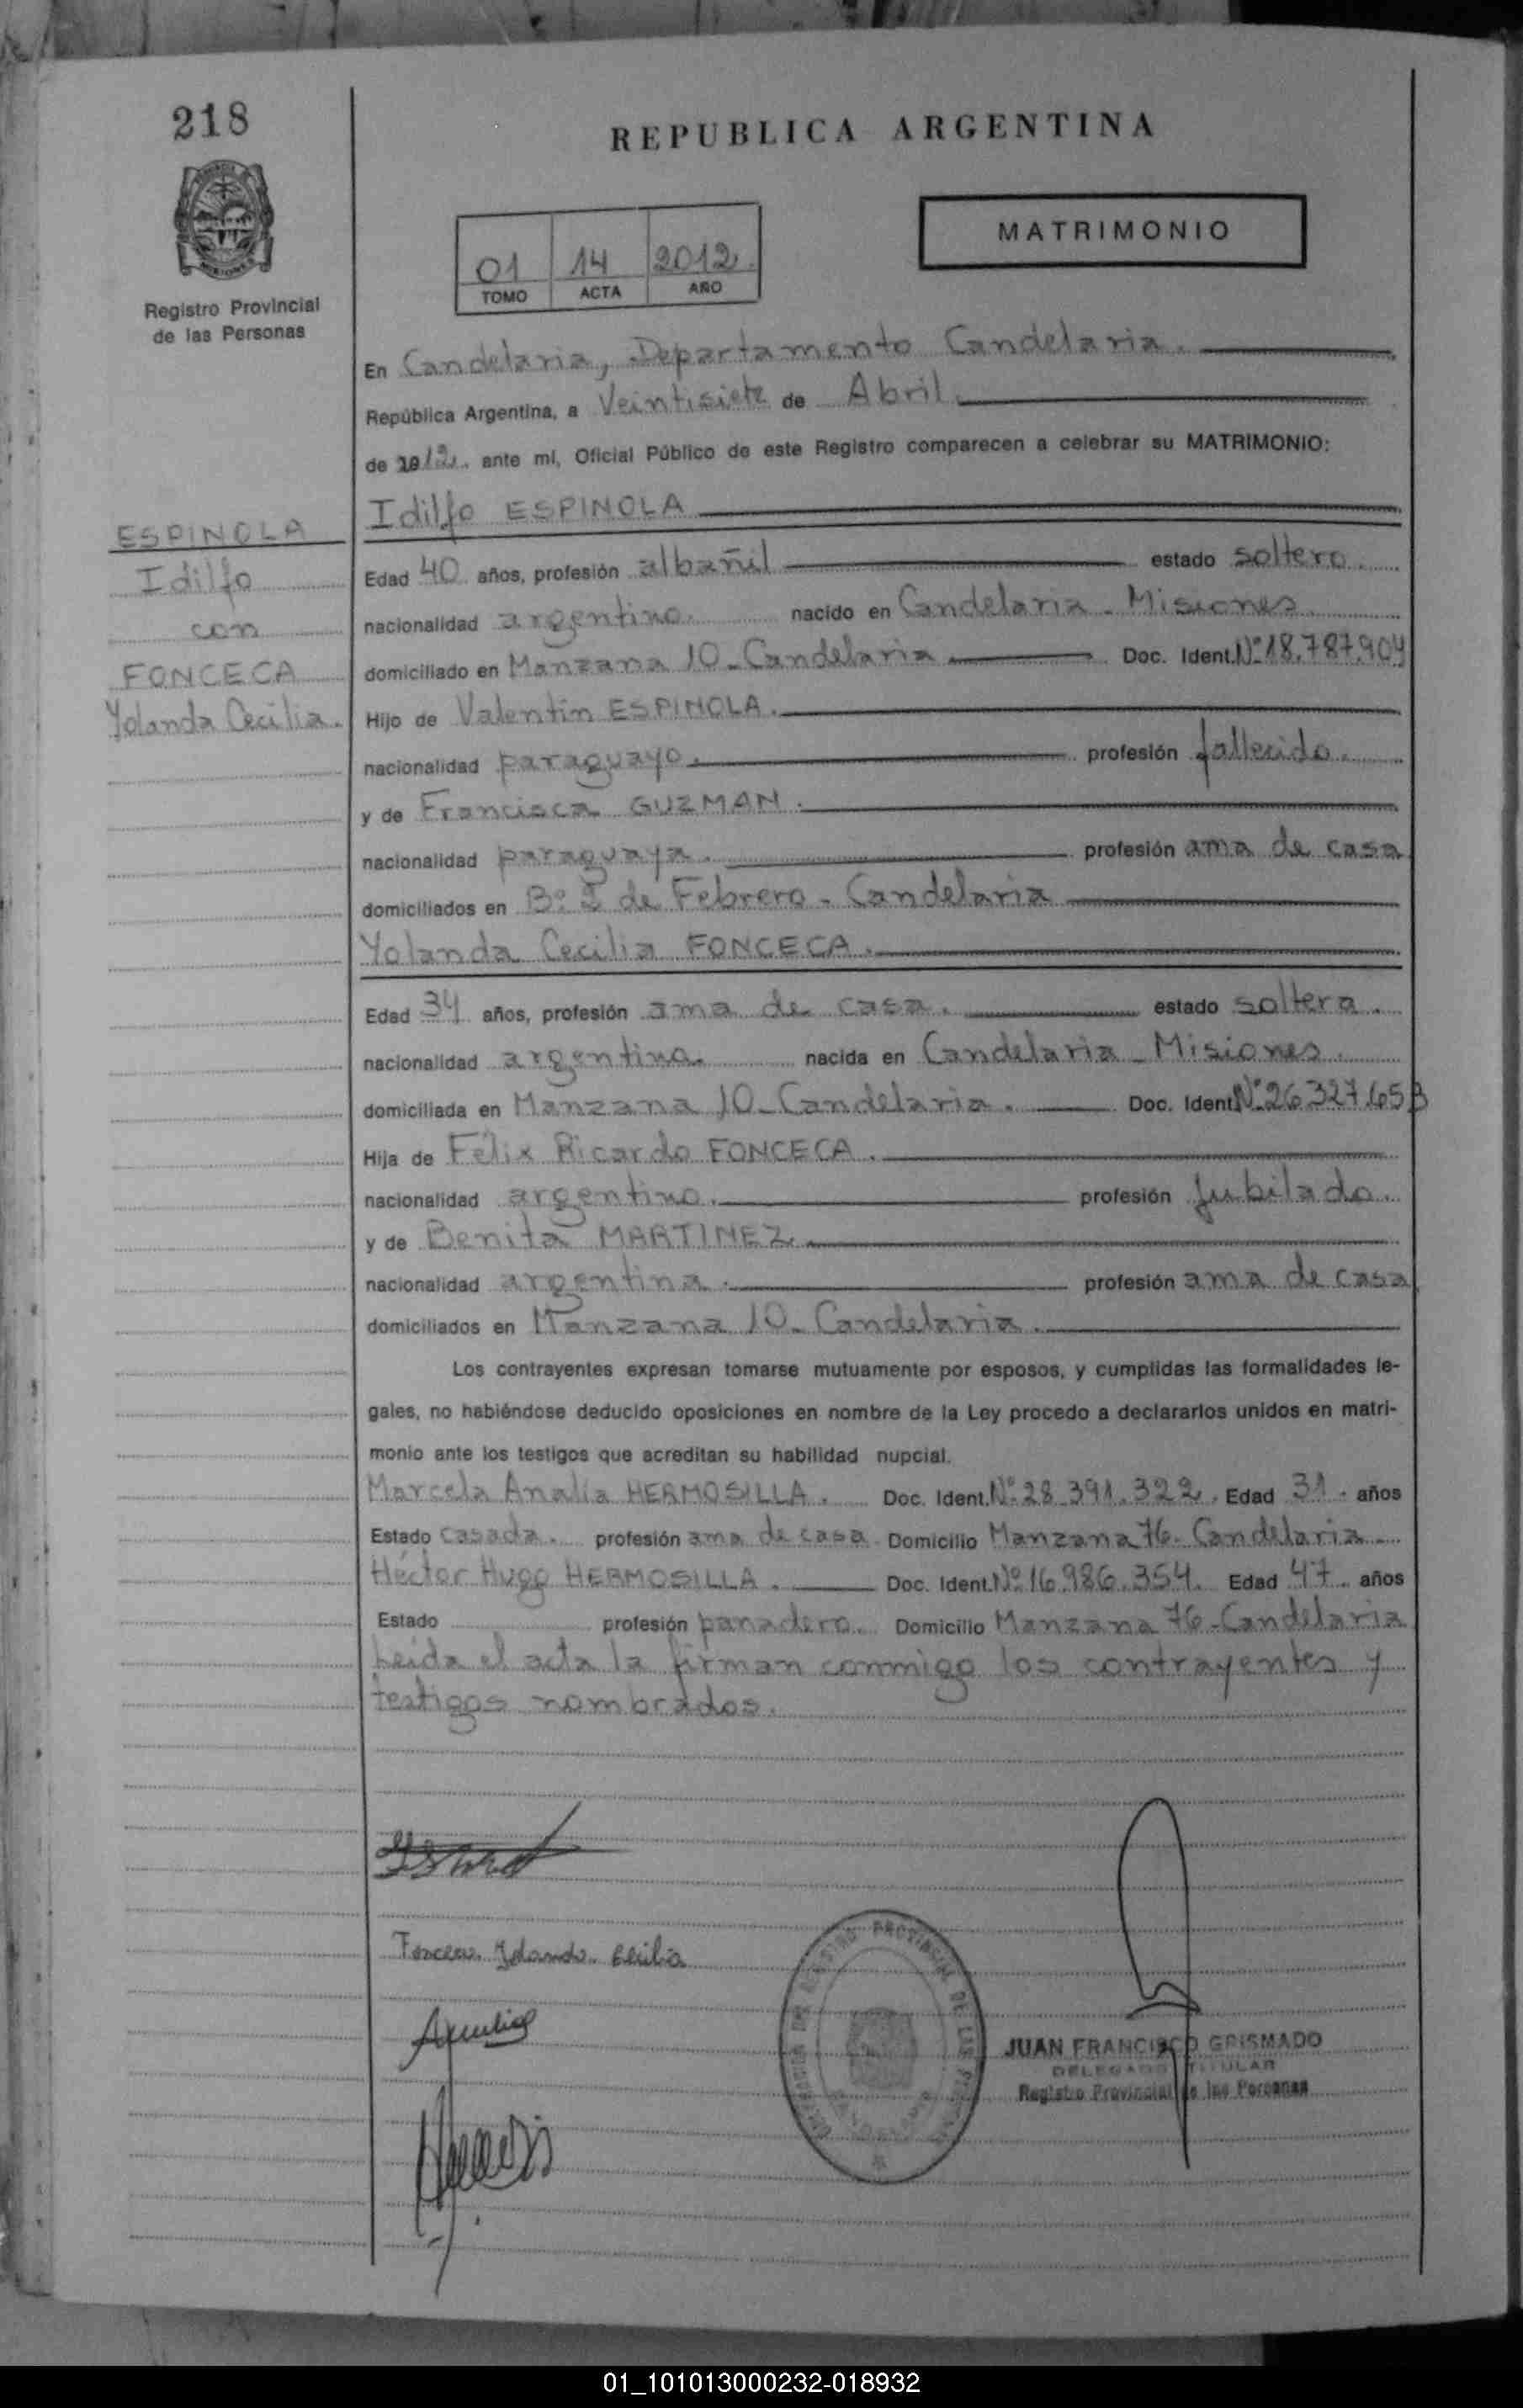 218
REPUBLICA ARGENTINA
MATRIMONIO
01 14 2012
TOMO ACTA AÑO
Registro Provincial
de las Personas
En Candelaria, Departamento Candelaria.
República Argentina, a Veintisiete de Abril
de 2012. ante mí, Oficial Público de este Registro comparecen a celebrar su MATRIMONIO:
ESPINOLA
Idilfo
con
FONCECA
Yolanda Cecilia.
Idilfo ESPINOLA
Edad 40 años, profesión albañil estado soltero.
nacionalidad argentino. nacido en Candelaria - Misiones.
domiciliado en Manzana 10 - Candelaria Doc. Ident. Nº 18.787.904
Hijo de Valentín ESPINOLA.
nacionalidad paraguayo. profesión fallecido.
y de Francisca GUZMAN.
nacionalidad paraguaya. profesión ama de casa
domiciliados en Bº de Febrero - Candelaria
Yolanda Cecilia FONCECA.
Edad 34 años, profesión ama de casa. estado soltera.
nacionalidad argentina. nacida en Candelaria - Misiones.
domiciliada en Manzana 10 - Candelaria. Doc. Ident. Nº 26.327.653
Hija de Félix Ricardo FONCECA.
nacionalidad argentino. profesión jubilado.
y de Benita MARTINEZ.
nacionalidad argentina. profesión ama de casa
domiciliados en Manzana 10 - Candelaria.
Los contrayentes expresan tomarse mutuamente por esposos, y cumplidas las formalidades le-
gales, no habiéndose deducido oposiciones en nombre de la Ley procedo a declararlos unidos en matri-
monio ante los testigos que acreditan su habilidad nupcial.
Marcela Analía HERMOSILLA. Doc. Ident. Nº 28.391.322. Edad 31. años
Estado casada. profesión ama de casa. Domicilio Manzana 76 - Candelaria.
Héctor Hugo HERMOSILLA. Doc. Ident. Nº 16.986.354. Edad 47. años
Estado profesión panadero. Domicilio Manzana 76 - Candelaria
Leída el acta la firman conmigo los contrayentes y
testigos nombrados.
Fonceca Yolanda Cecilia
JUAN FRANCISCO GRISMADO
DELEGADO TITULAR
Registro Provincial de las Personas
01_101013000232-018932